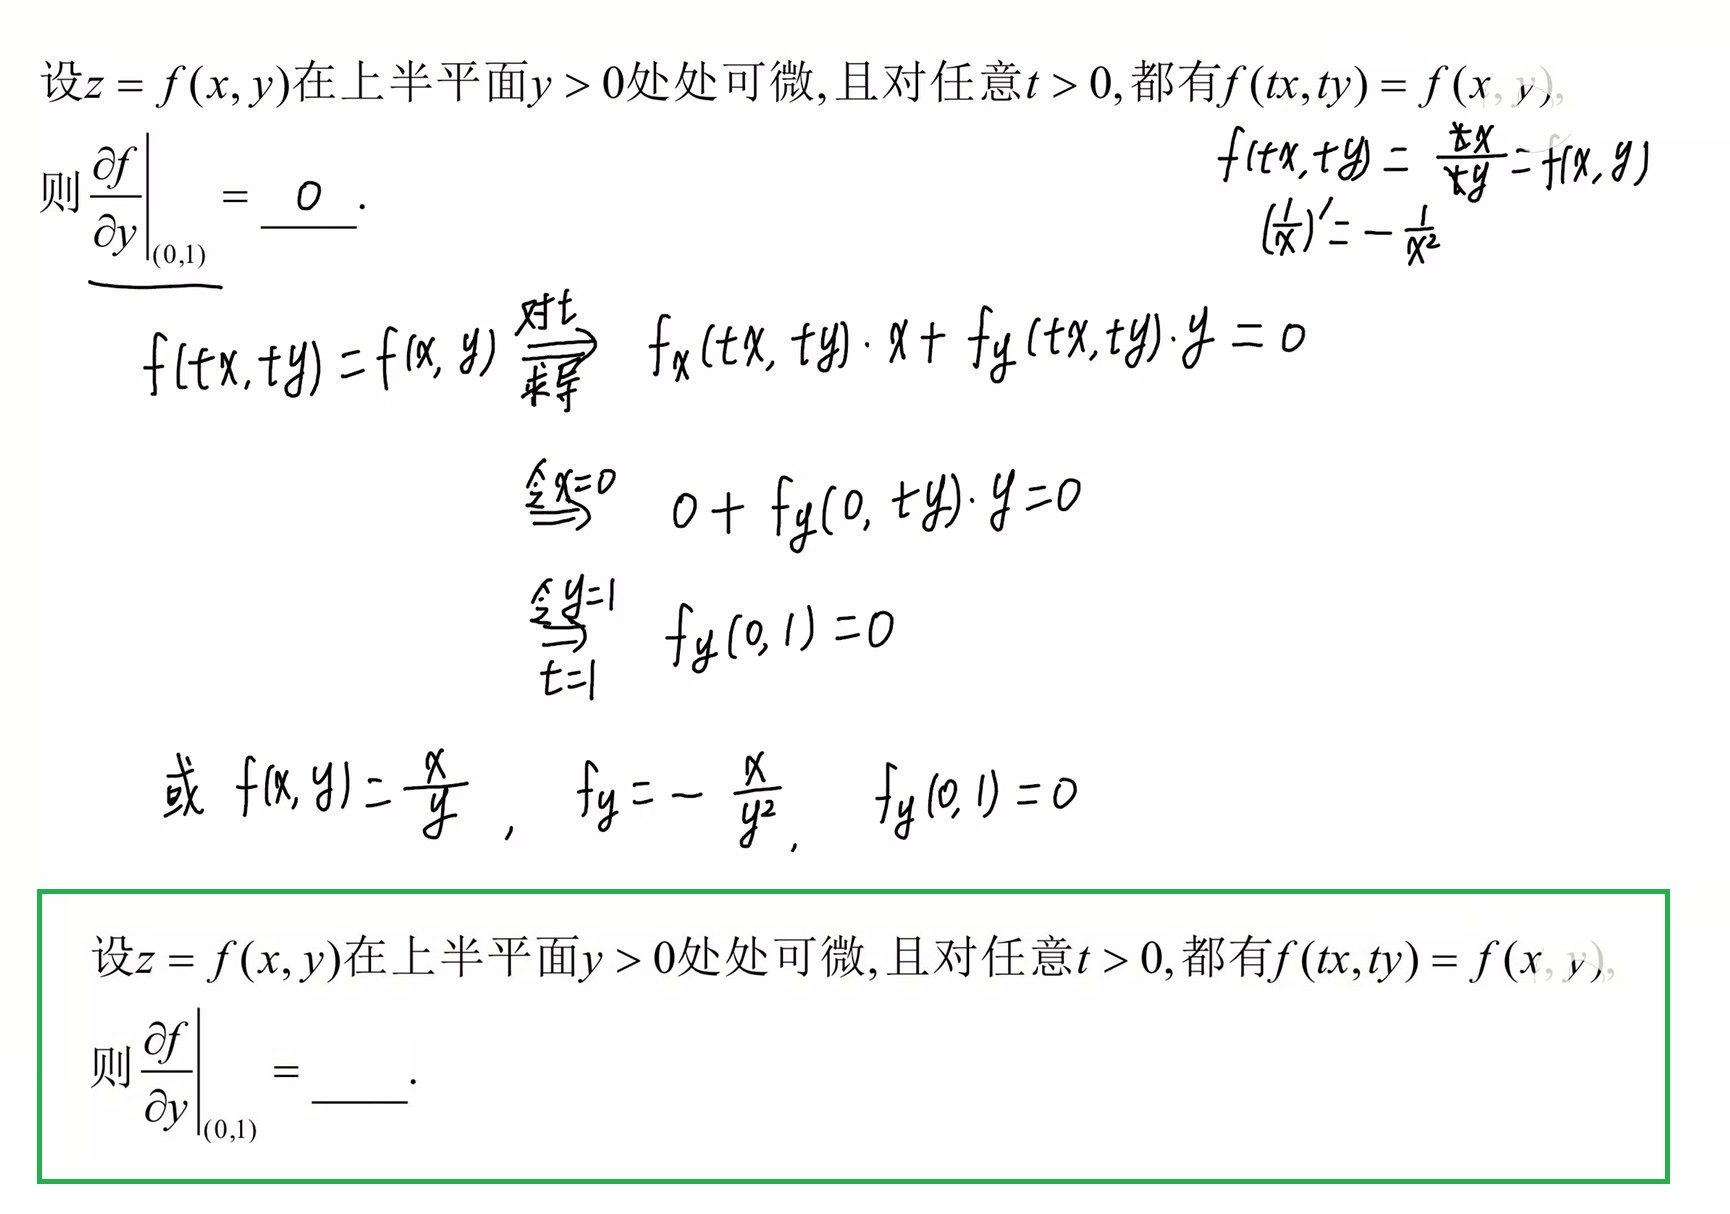 设z = f(x, y)在上半平面y > 0处处可微, 且对任意t > 0, 都有f(tx, ty) = f(x, y),
则 ∂f/∂y|(0,1) = 0 .
f(tx, ty) = tx/ty = f(x, y)
(1/x)′ = - 1/x²
f(tx, ty) = f(x, y) 对t求导 ⇒ fx(tx, ty)·x + fy(tx, ty)·y = 0
令x=0 ⇒ 0 + fy(0, ty)·y = 0
令y=1 t=1 ⇒ fy(0, 1) = 0
或 f(x, y) = x/y , fy = - x/y² , fy(0, 1) = 0
设z = f(x, y)在上半平面y > 0处处可微, 且对任意t > 0, 都有f(tx, ty) = f(x, y),
则 ∂f/∂y|(0,1) = ____ .